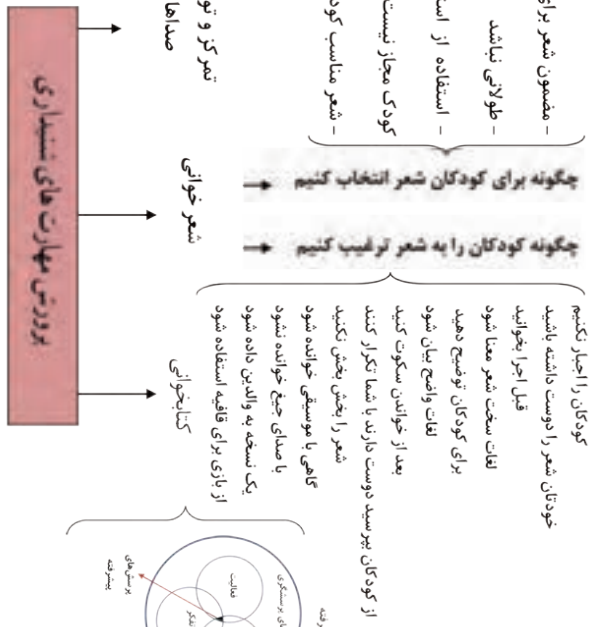 پرورش مهارت‌های شنیداری
تمرکز و
صداها
شعر خوانی
کتابخوانی
چگونه برای کودکان شعر انتخاب کنیم
- مضمون شعر برای
- طولانی نباشد
- استفاده از
کودک مجاز نیست
- شعر مناسب
چگونه کودکان را به شعر ترغیب کنیم
کودکان را اجبار نکنیم
خودتان شعر را دوست داشته باشید
قبل اجرا بخوانید
لغات سخت شعر معنا شود
برای کودکان توضیح دهید
لغات واضح بیان شود
بعد از خواندن سکوت کنید
از کودکان بپرسید دوست دارند با شما تکرار کنند
شعر را بخش بخش نکنید
گاهی با موسیقی خوانده شود
با صدای جیغ خوانده نشود
یک نسخه به والدین داده شود
از بازی برای قافیه استفاده شود
فعالیت
تفکر
پرسشگری
پرسش‌های
پیشرفته